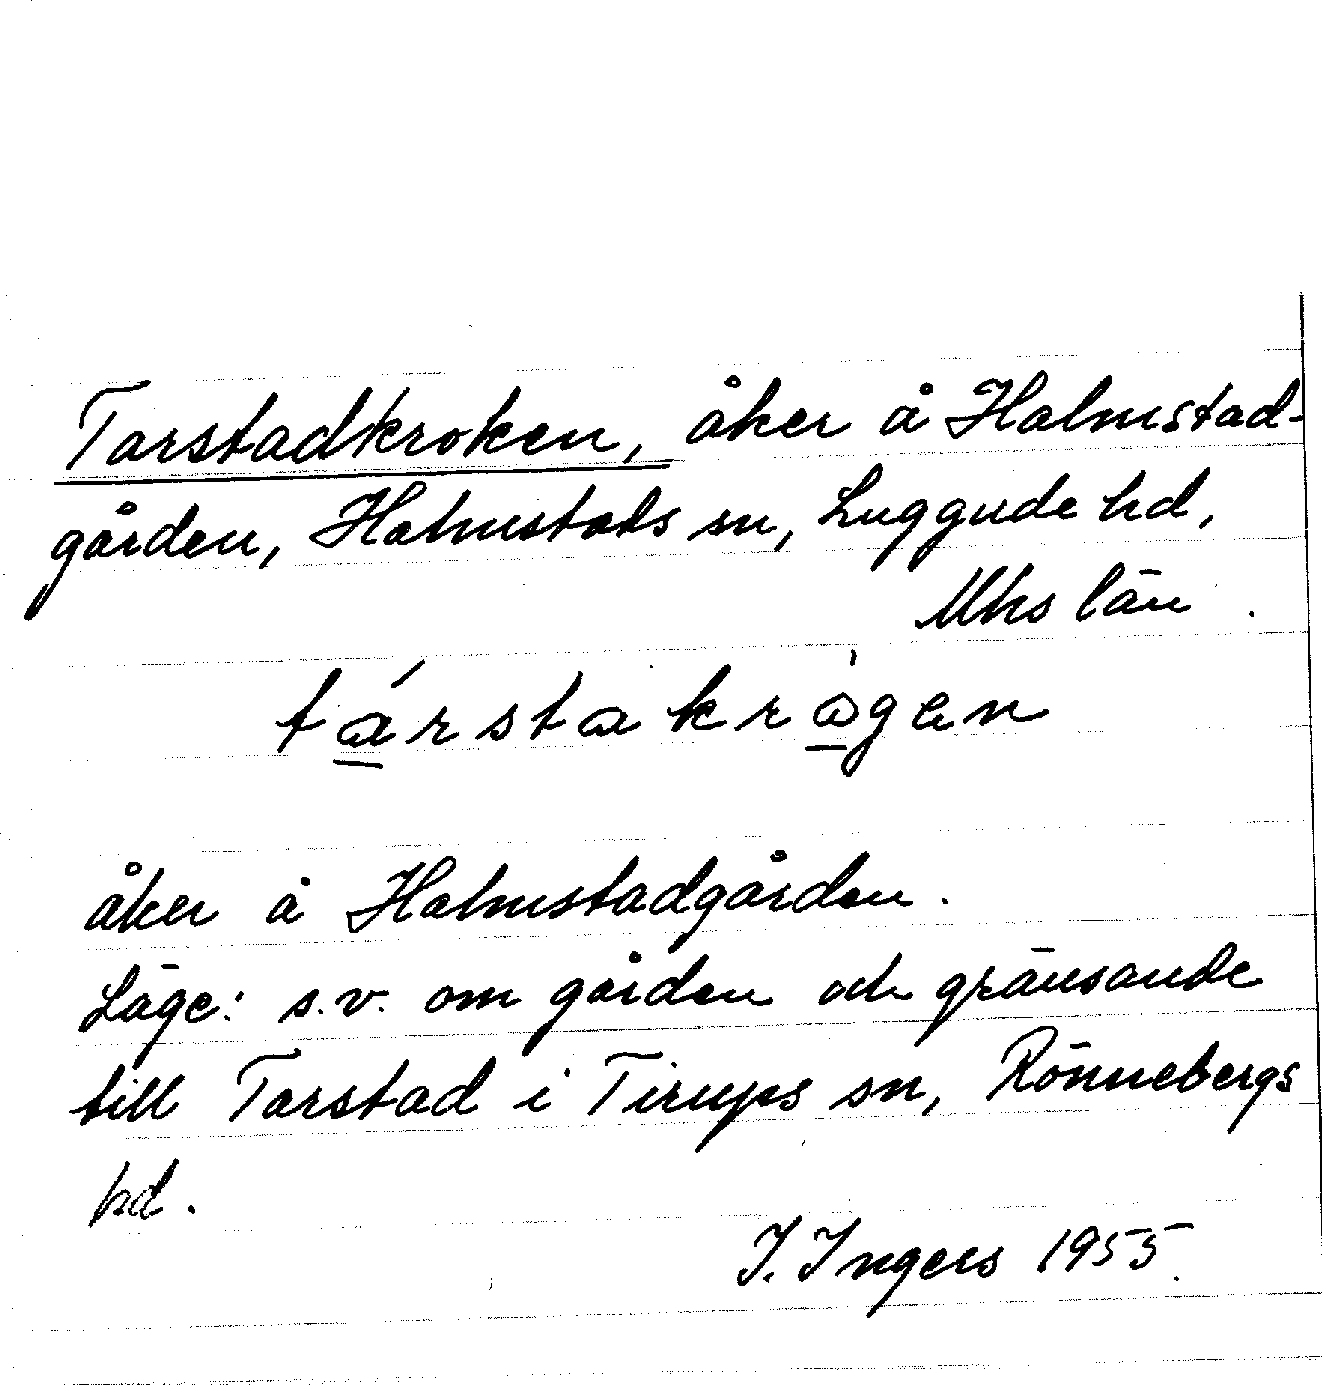 Tarstadkroken, åker å Halmstad-
gården, Halmstads sn, Luggude hd,
Mhs län.
társtakrågen
åker å Halmstadgården.
Läge: s.v. om gården och gränsande
till Tarstad i Tirups sn, Rönnebergs
hd.
I. Ingers 1955.